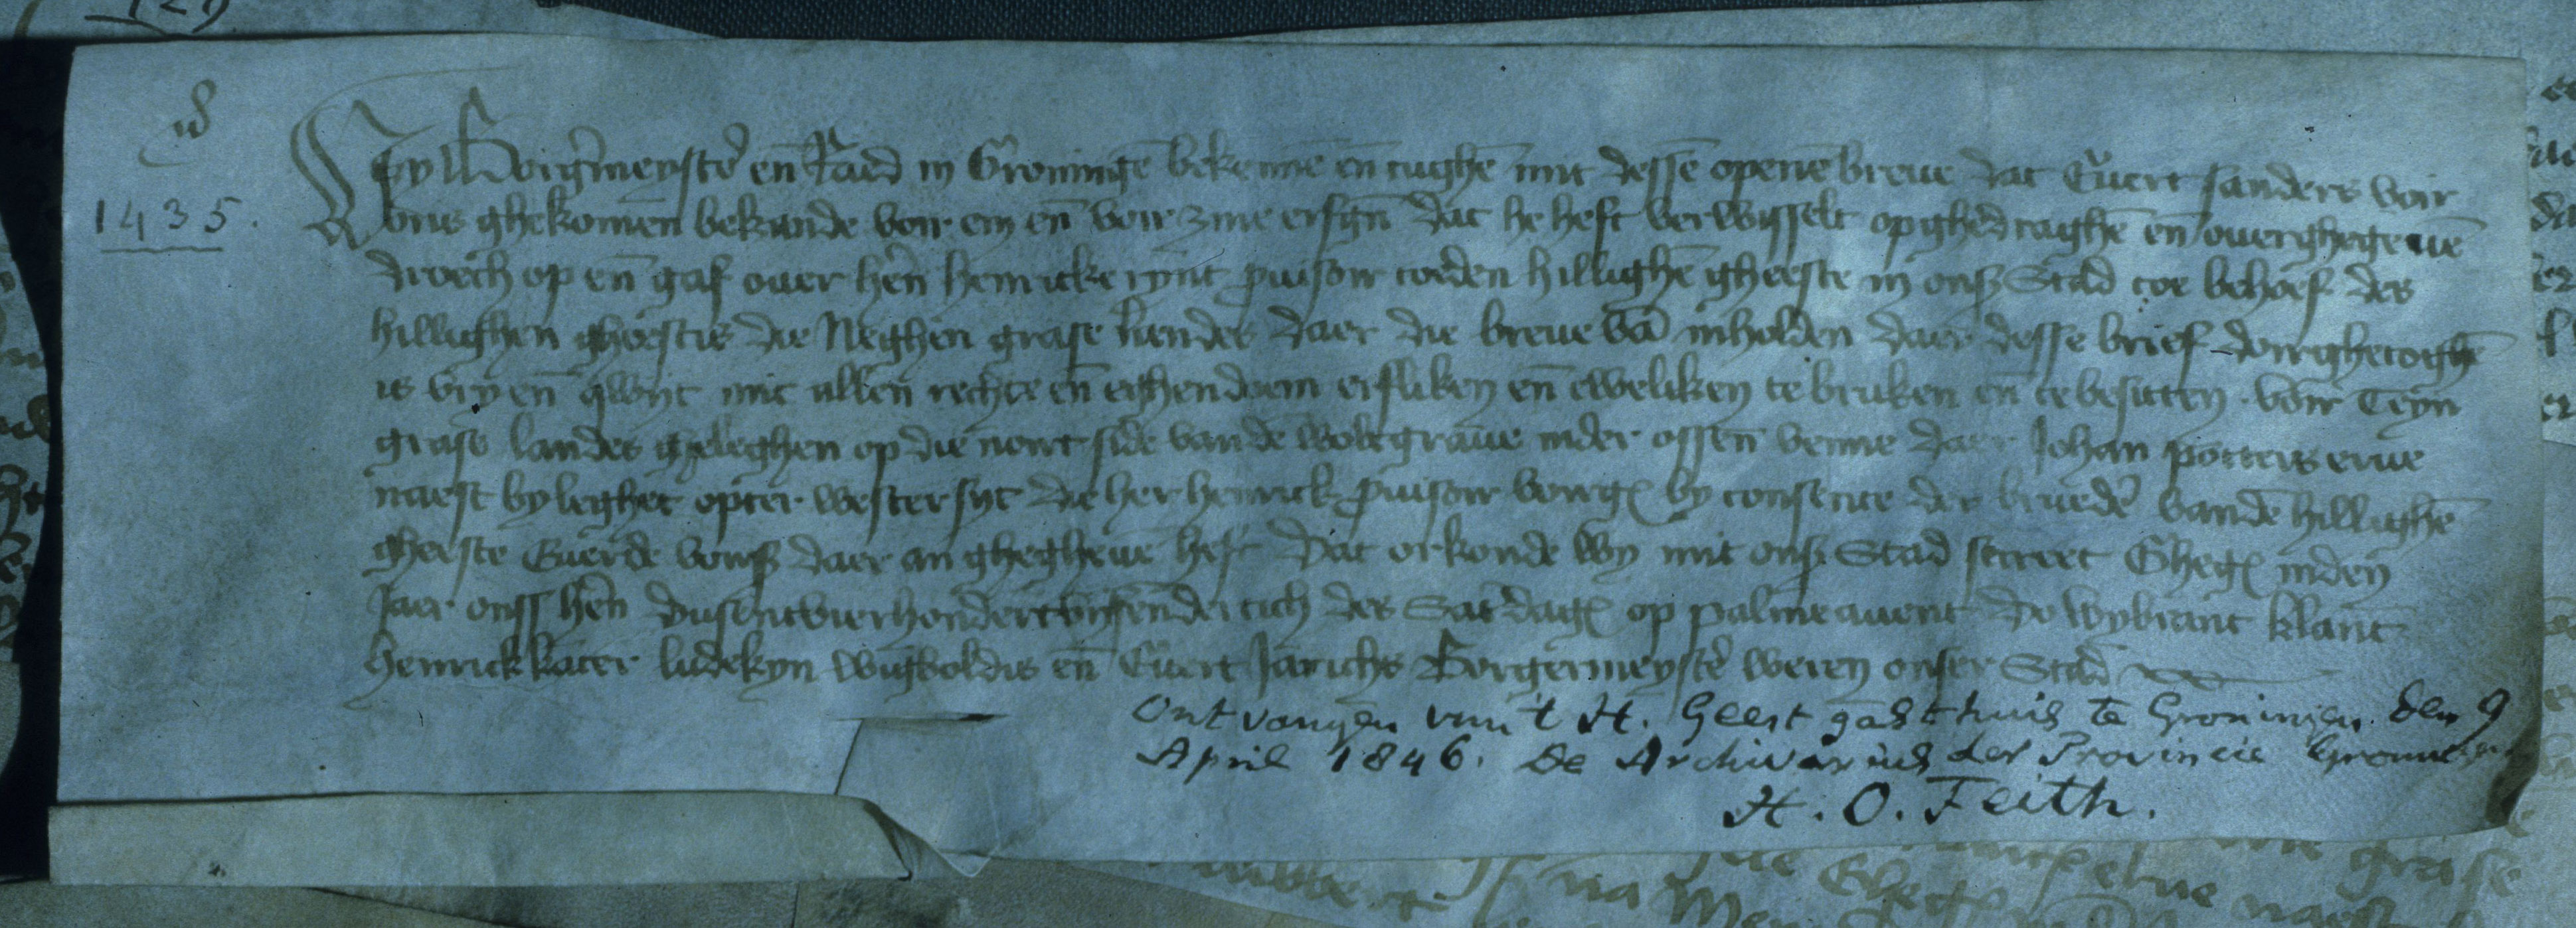 1435.
Wy Borg̃meyst̃e en̄ Raed in Groningē bekennē en̄ tughē mit dessē openē breue dat Euert sanders voir
ons ghekomen bekande voir em en̄ voir zine erfgn̄ dat he heft verwisselt opghedraghē en̄ ouerghegeuē
droech op en̄ gaf ouer hern̄ henricke rynt prouisoir toeden hillighē gheeste in onß Stad toe behoef des
hillighen gheestes die Neghen grase landes daer die breue vā inholden daer desse brief doirghetoghē
is vry en̄ qwyt mit allen rechte en̄ eyghendoem erfliken en̄ eweliken te bruken en̄ te besitten voir Teyn
grase landes gheleghen op die nort side van dē woltgraue inder ossen venne daer Johan potters erue
naest by leghet opter wester syt die her henrick prouisoir voirg by consente der bruederē vandē hillighē
gheeste Euerde vorß daer an ghegheuē heft Dat orkonde wy mit onß Stad secreet Gheg inden
Jaer onss hēn dusentvierhondertvyfendertich des Sat̃dag op palme auent do wybrant klant
henrick kater ludekyn wigboldis en̄ Euert Jarichs Borgermeyst̃e weren onser Stad
Ontvangen van 't H. Geest gasthuis te Groningen den 9
April 1846. De Archivarius der Provincie Groningen
H. O. Feith.